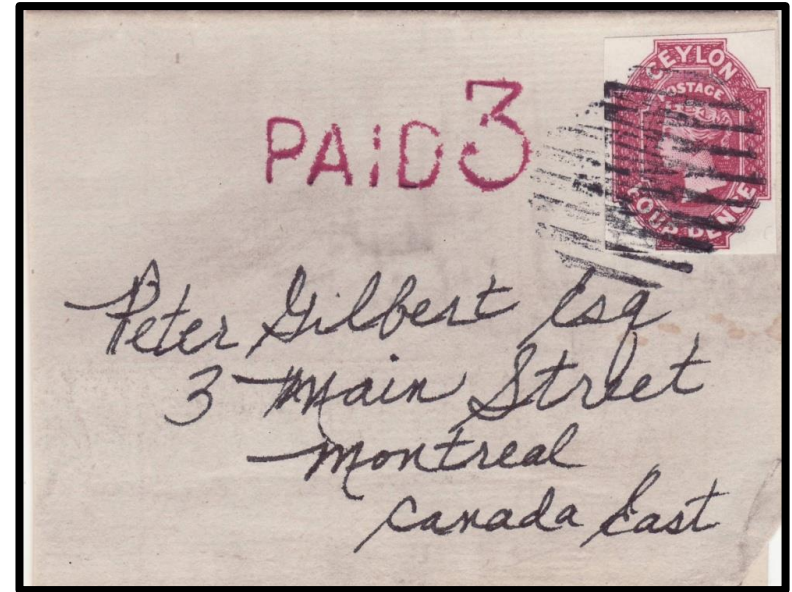 CEYLON
POSTAGE
FOUR PENCE
PAID 3
Peter Gilbert Esq
3 Main Street
Montreal
Canada East